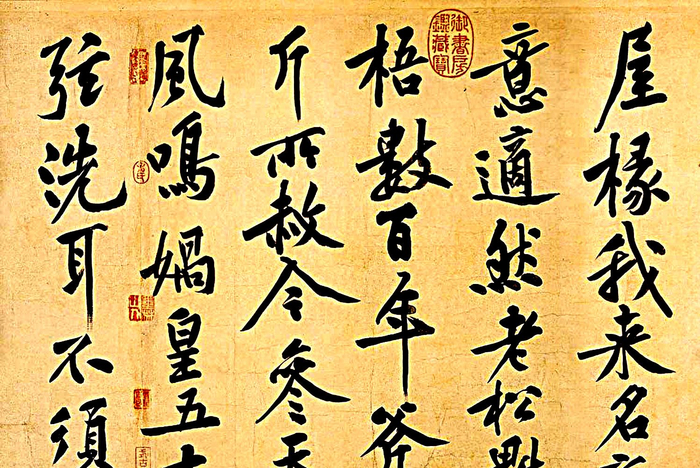 屋椽我来名
意適然老松魁
梧數百年斧
斤所赦今參天
風鳴媧皇五十
弦洗耳不須
御書房
鑑藏寶